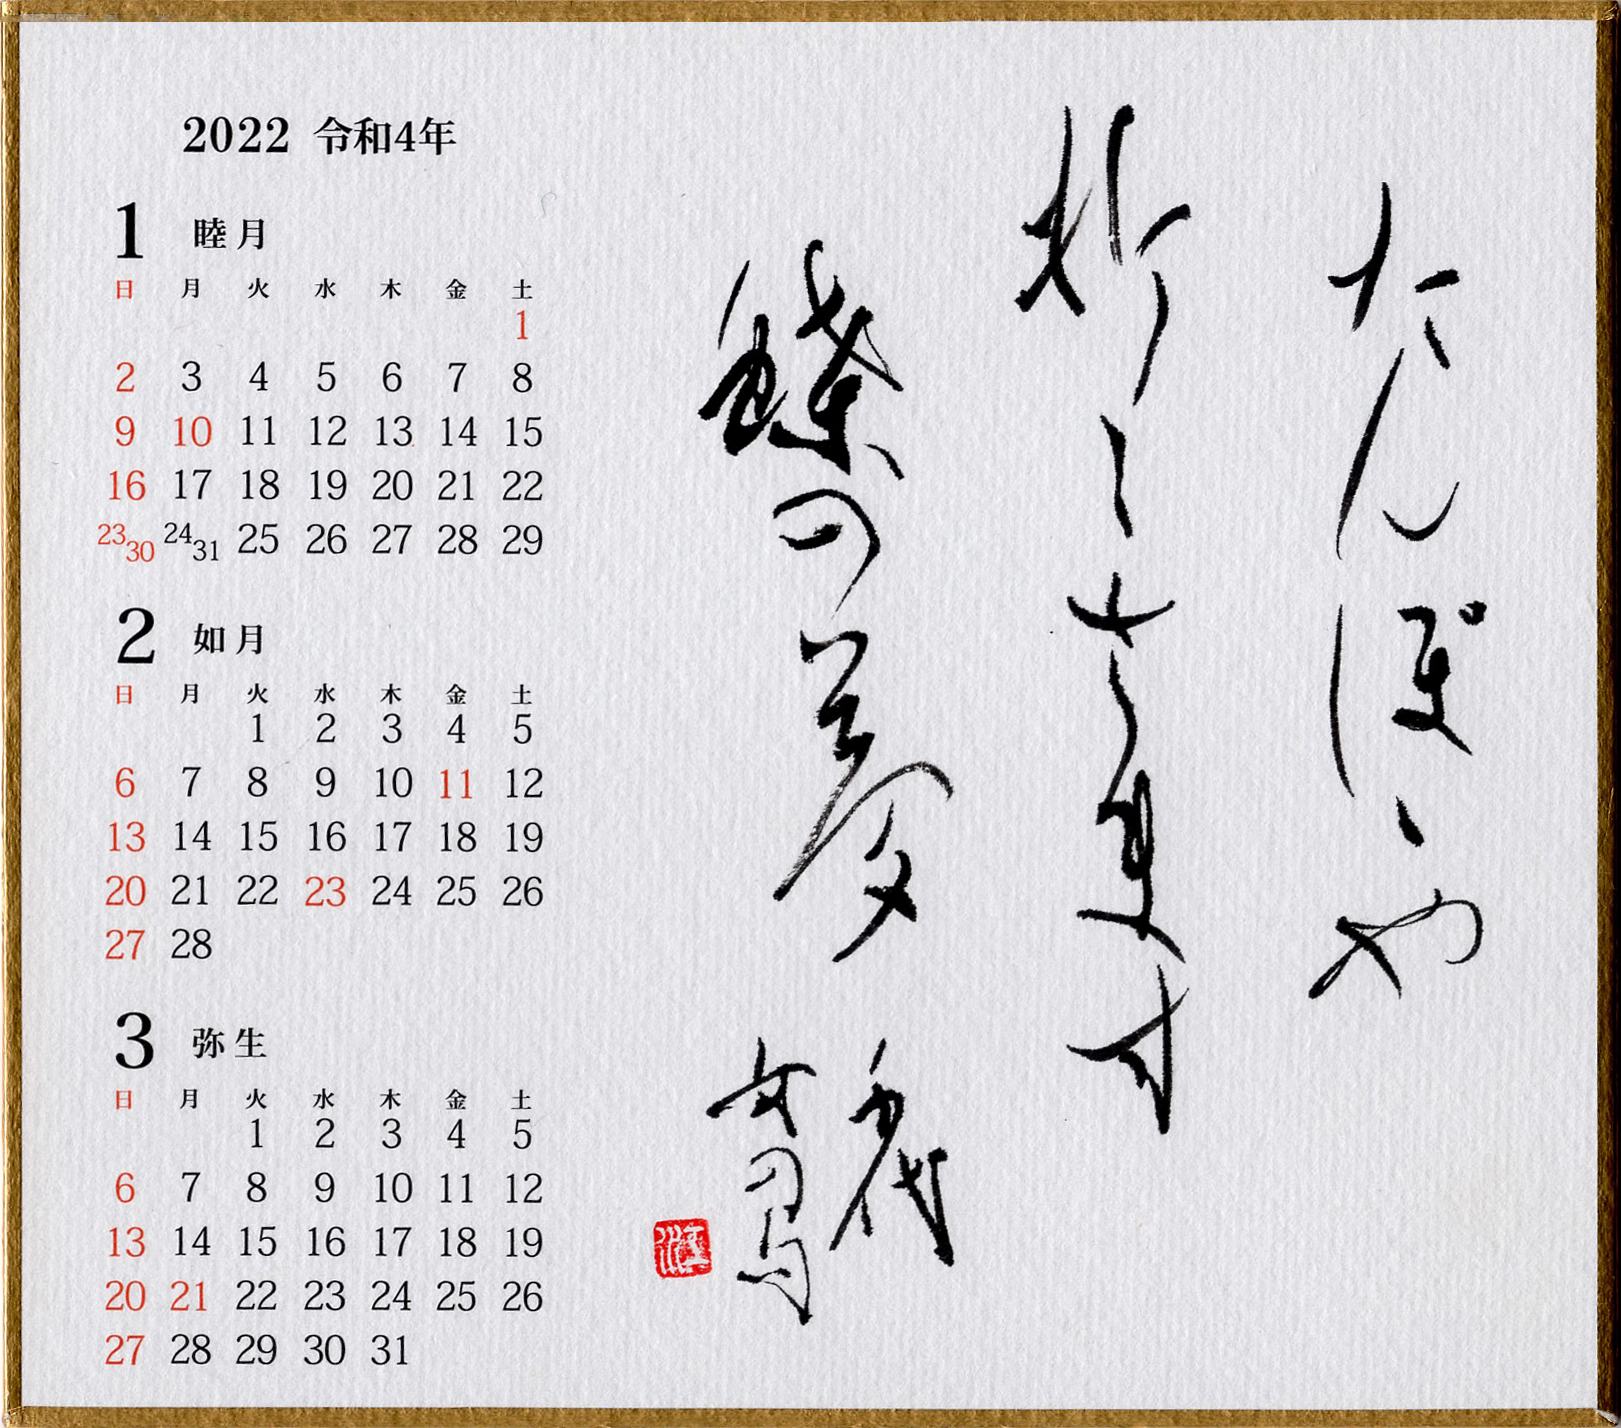 2022 令和4年
1 睦月
日 月 火 水 木 金 土
1
2 3 4 5 6 7 8
9 10 11 12 13 14 15
16 17 18 19 20 21 22
23 30 24 31 25 26 27 28 29
2 如月
日 月 火 水 木 金 土
1 2 3 4 5
6 7 8 9 10 11 12
13 14 15 16 17 18 19
20 21 22 23 24 25 26
27 28
3 弥生
日 月 火 水 木 金 土
1 2 3 4 5
6 7 8 9 10 11 12
13 14 15 16 17 18 19
20 21 22 23 24 25 26
27 28 29 30 31
たんぽゝや
折々さます
蝶の夢
千代
女の句